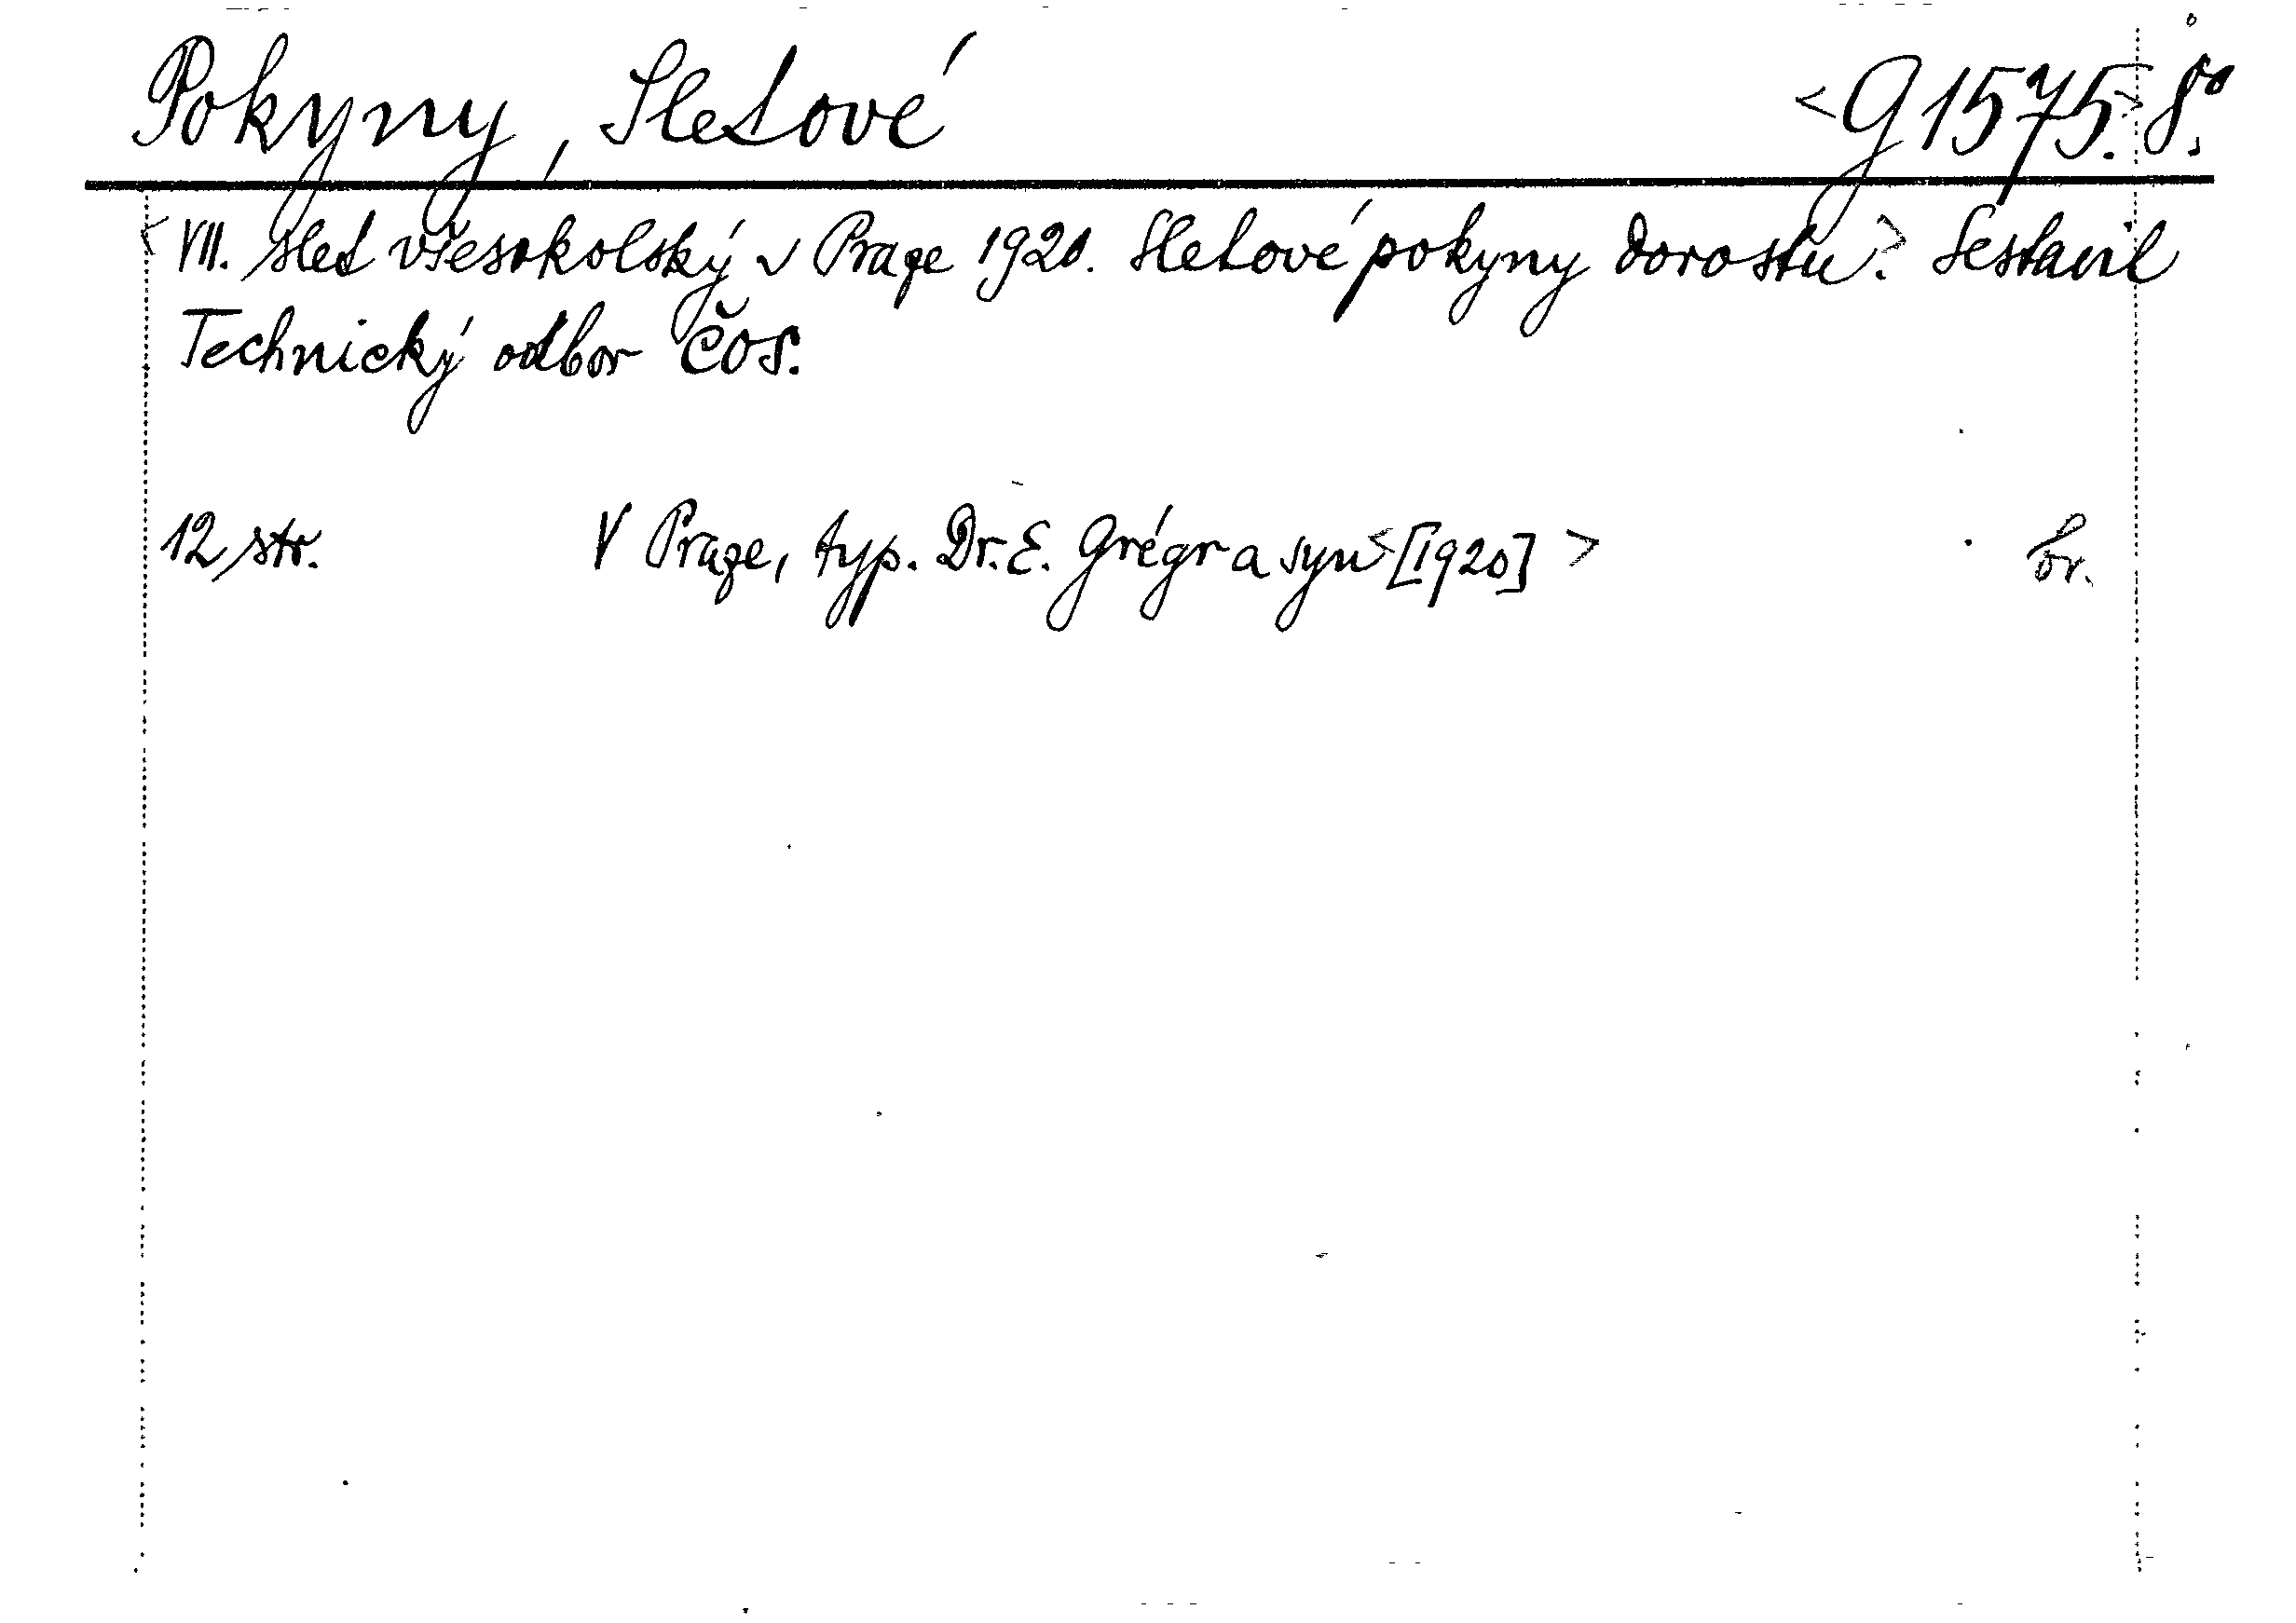 Pokyny, Sletové <G 1575.> 8º.
<VII. slet všesokolský v Praze 1920. Sletové pokyny dorostu.> Sestavil
Technický odbor ČOS.
12 str. V Praze, typ. Dr. E. Grégr a syn <[1920]> br.